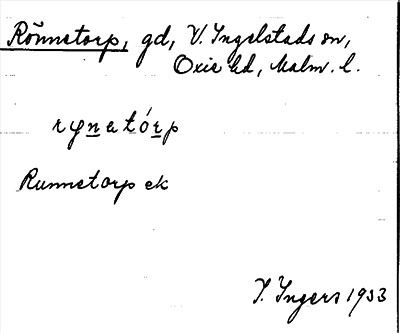 Rönnetorp, gd, V. Ingelstads sn,
Oxie hd, Malm. l.
rynetórp
Runnetorp ek
I. Ingers 1933